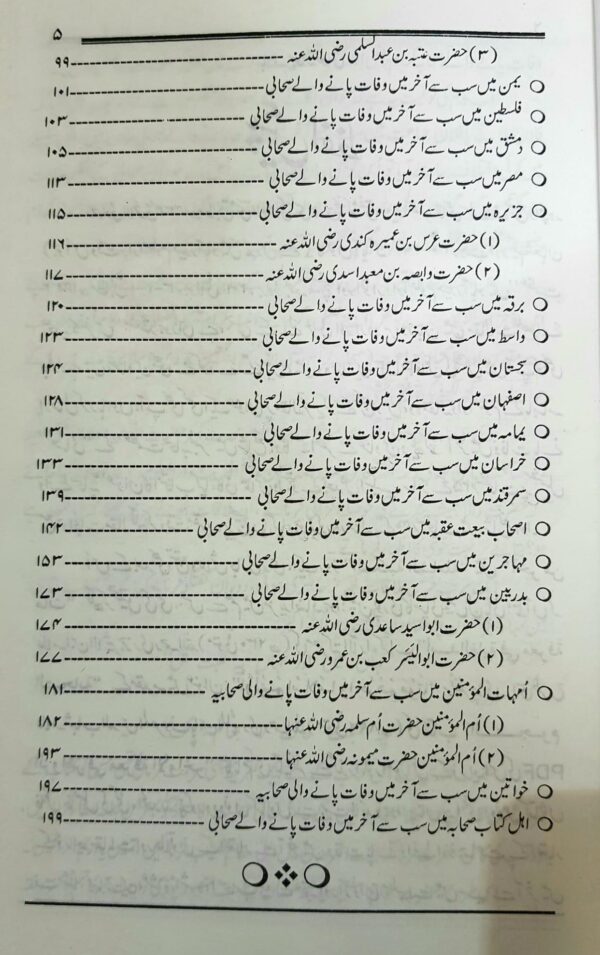 ۵
(۳) حضرت عتبہ بن عبدالسلمی رضی اللہ عنہ ------------------------ ۹۹
○ یمن میں سب سے آخر میں وفات پانے والے صحابی ------------------------ ۱۰۱
○ فلسطین میں سب سے آخر میں وفات پانے والے صحابی ------------------------ ۱۰۳
○ دمشق میں سب سے آخر میں وفات پانے والے صحابی ------------------------ ۱۰۵
○ مصر میں سب سے آخر میں وفات پانے والے صحابی ------------------------ ۱۱۳
○ جزیرہ میں سب سے آخر میں وفات پانے والے صحابی ------------------------ ۱۱۵
(۱) حضرت عرس بن عمیرہ کندی رضی اللہ عنہ ------------------------ ۱۱۶
(۲) حضرت وابصہ بن معبد اسدی رضی اللہ عنہ ------------------------ ۱۱۷
○ برقہ میں سب سے آخر میں وفات پانے والے صحابی ------------------------ ۱۲۰
○ واسط میں سب سے آخر میں وفات پانے والے صحابی ------------------------ ۱۲۳
○ سجستان میں سب سے آخر میں وفات پانے والے صحابی ------------------------ ۱۲۴
○ اصفہان میں سب سے آخر میں وفات پانے والے صحابی ------------------------ ۱۲۸
○ یمامہ میں سب سے آخر میں وفات پانے والے صحابی ------------------------ ۱۳۱
○ خراسان میں سب سے آخر میں وفات پانے والے صحابی ------------------------ ۱۳۳
○ سمرقند میں سب سے آخر میں وفات پانے والے صحابی ------------------------ ۱۳۹
○ اصحاب بیعت عقبہ میں سب سے آخر میں وفات پانے والے صحابی ------------------------ ۱۴۲
○ مہاجرین میں سب سے آخر میں وفات پانے والے صحابی ------------------------ ۱۵۳
○ بدریین میں سب سے آخر میں وفات پانے والے صحابی ------------------------ ۱۷۳
(۱) حضرت ابواسید ساعدی رضی اللہ عنہ ------------------------ ۱۷۴
(۲) حضرت ابوالیَسَر کعب بن عمرو رضی اللہ عنہ ------------------------ ۱۷۷
○ اُمہات المؤمنین میں سب سے آخر میں وفات پانے والی صحابیہ ------------------------ ۱۸۱
(۱) اُم المؤمنین حضرت اُم سلمہ رضی اللہ عنہا ------------------------ ۱۸۲
(۲) اُم المؤمنین حضرت میمونہ رضی اللہ عنہا ------------------------ ۱۹۳
○ خواتین میں سب سے آخر میں وفات پانے والی صحابیہ ------------------------ ۱۹۷
○ اہل کتاب صحابہ میں سب سے آخر میں وفات پانے والے صحابی ------------------------ ۱۹۹